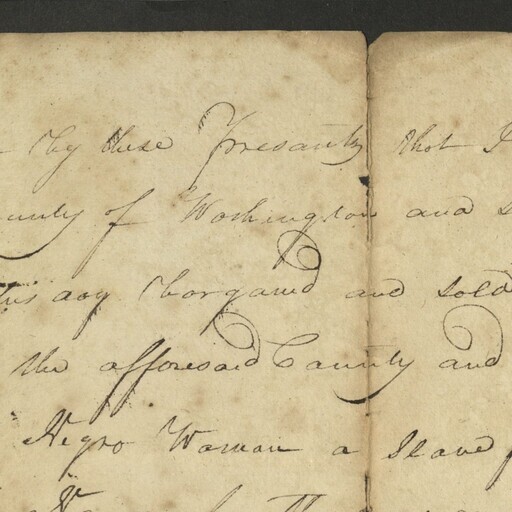 by these Presants that I
unty of Washington and
this day bargained and sold
the afforesaid County and
Negro Woman a Slave